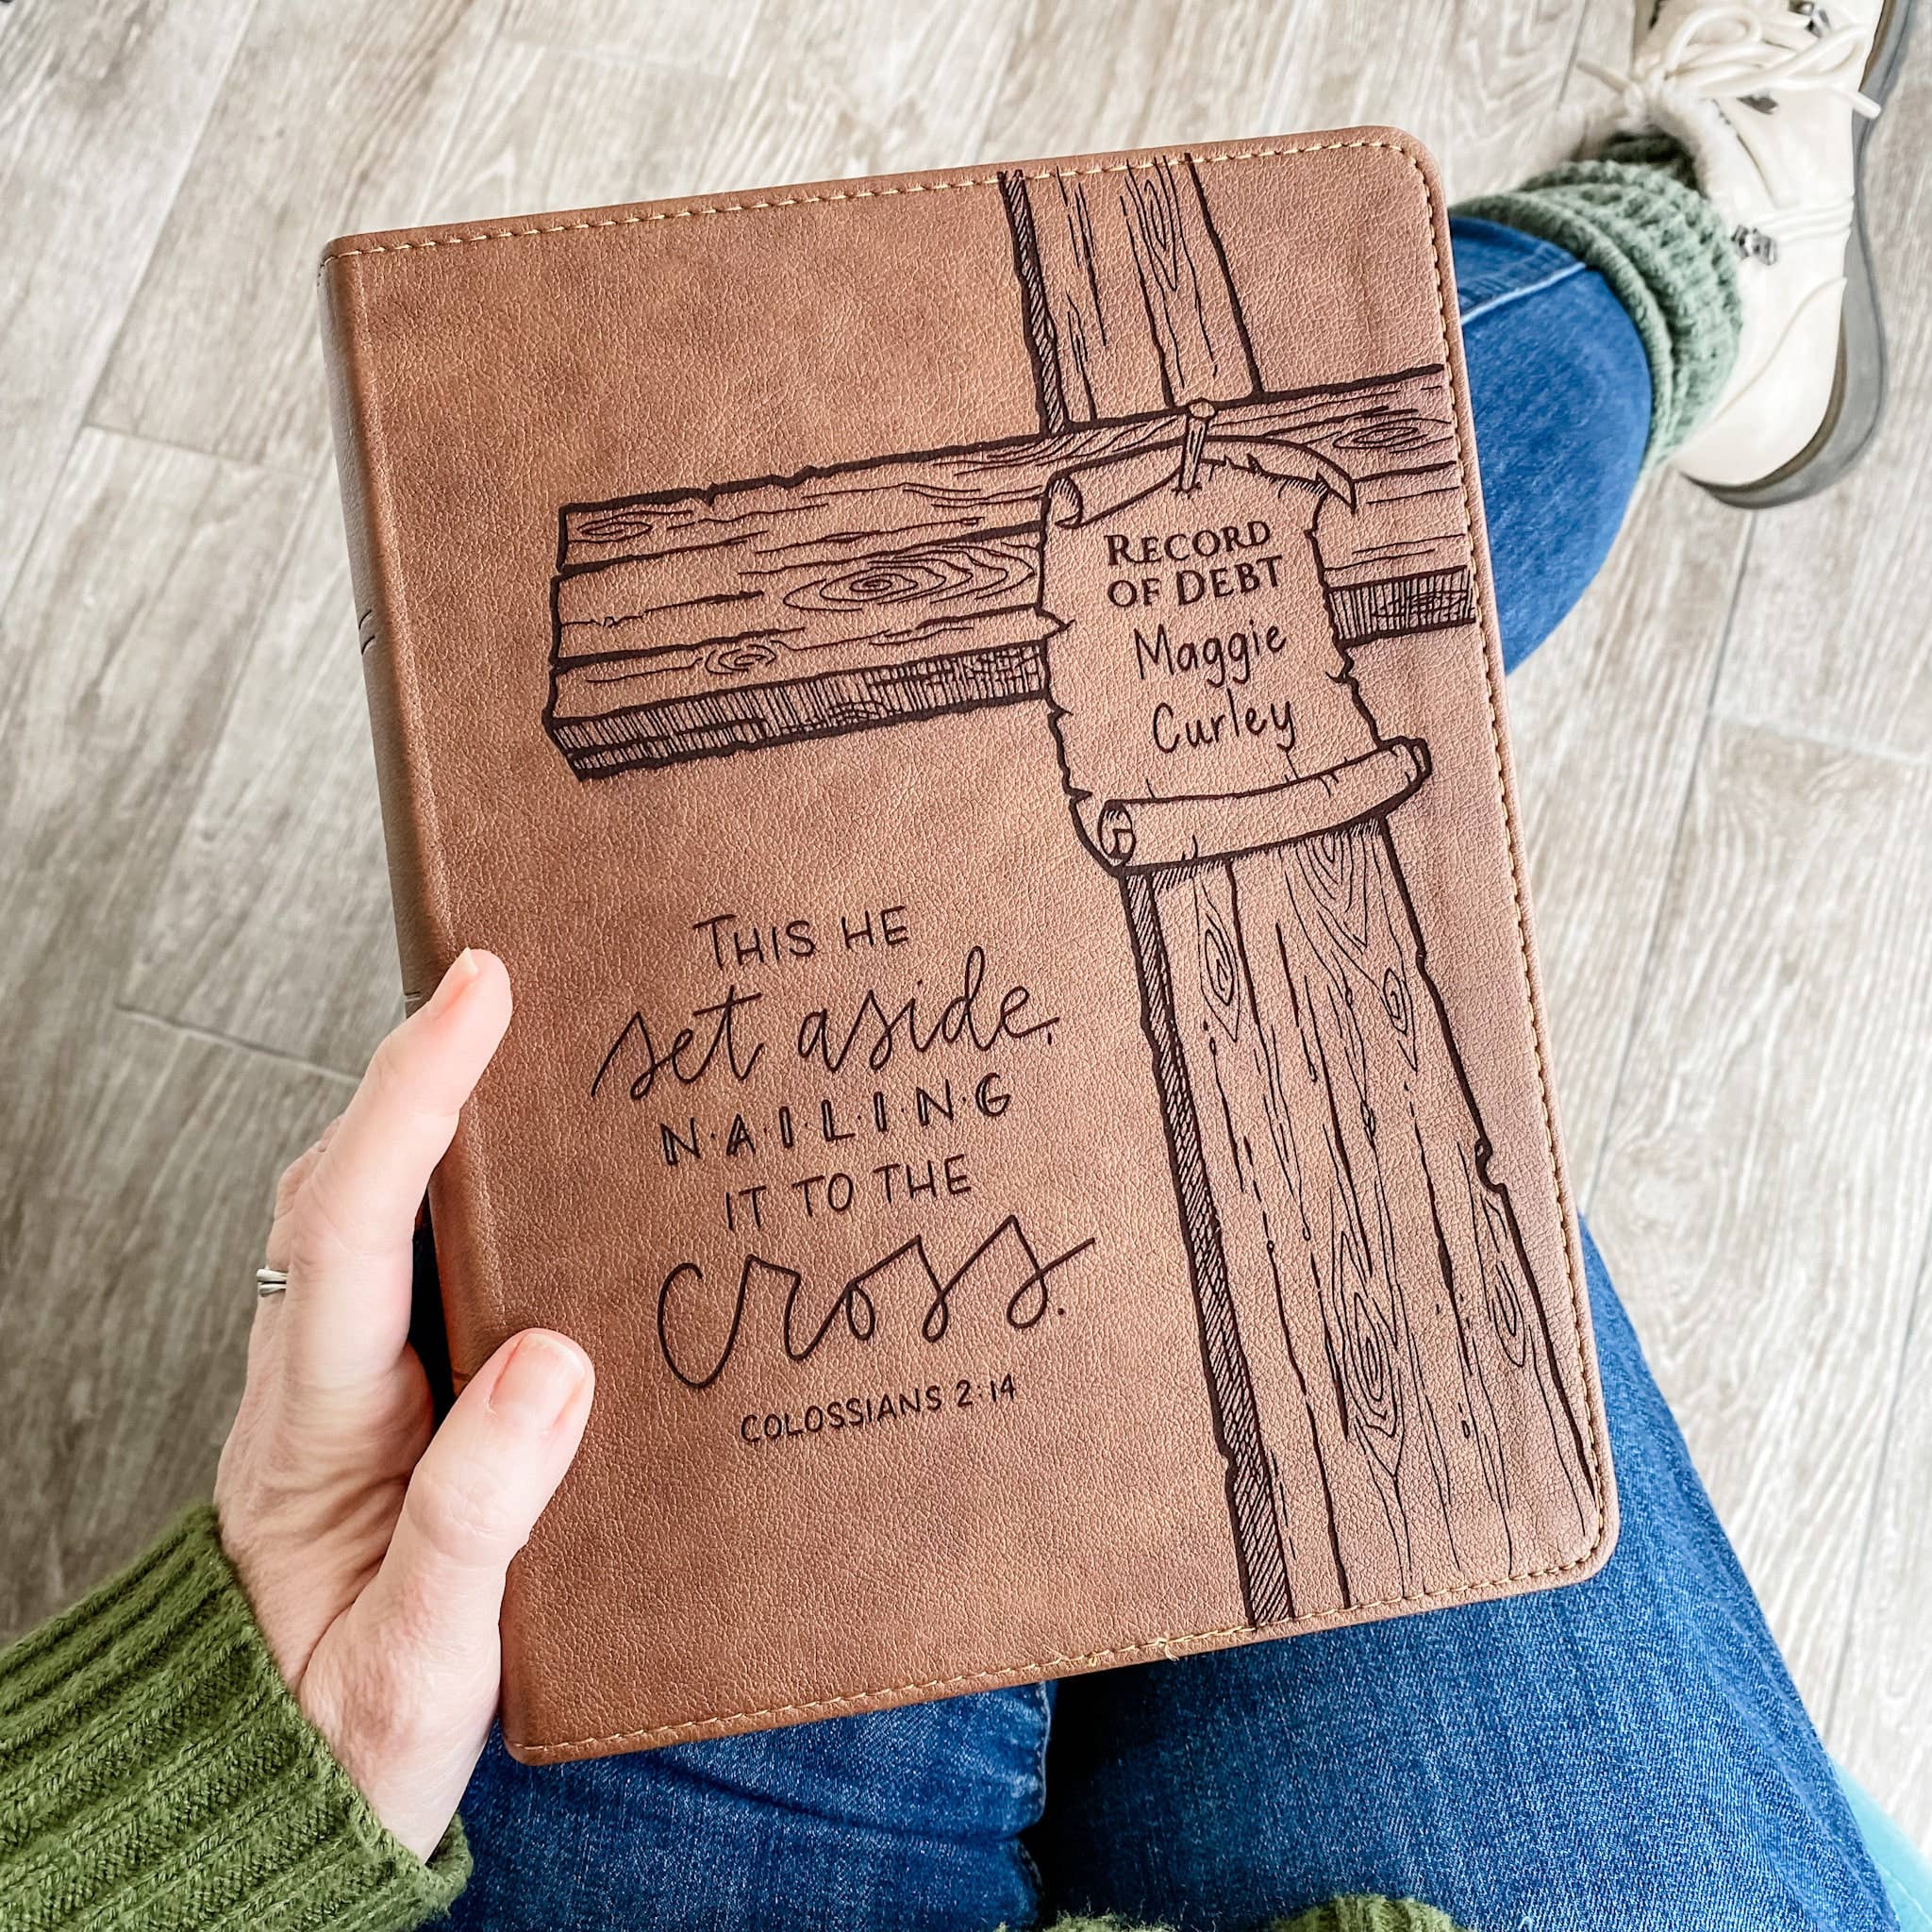 RECORD
OF DEBT
Maggie
Curley
THIS HE
set aside,
N·A·I·L·I·N·G
IT TO THE
cross.
COLOSSIANS 2:14